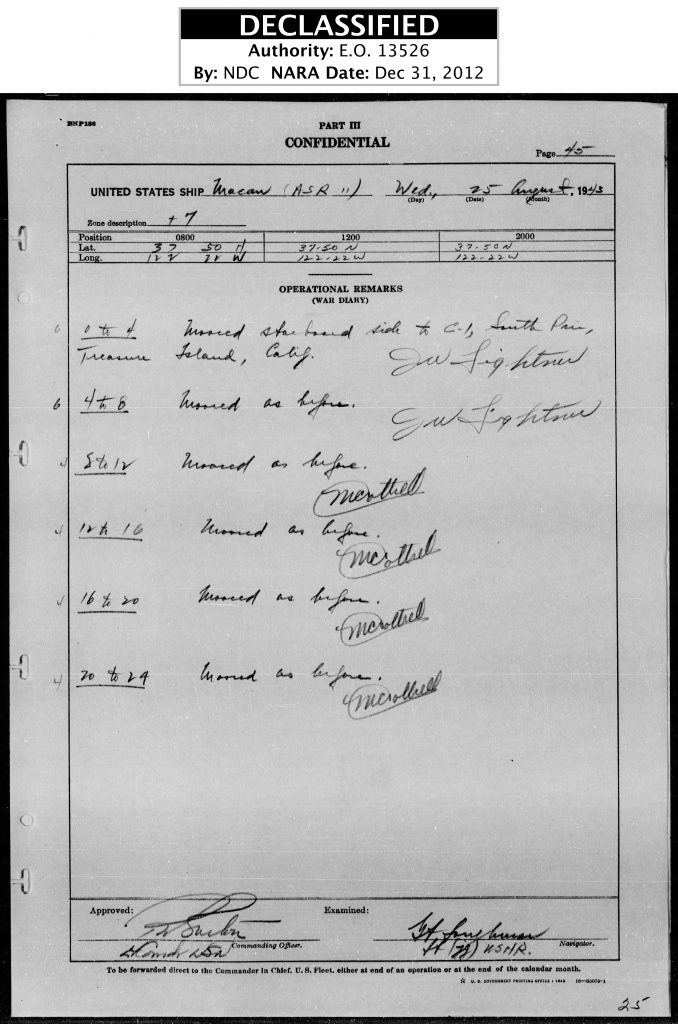 DECLASSIFIED
Authority: E.O. 13526
By: NDC NARA Date: Dec 31, 2012
BNP186
PART III
CONFIDENTIAL
Page 45
UNITED STATES SHIP Macaw (ASR 11) Wed., 25 August, 1943
(Day) (Date) (Month)
Zone description +7
Position 0800 1200 2000
Lat. 37 50 N 37-50 N 37-50 N
Long. 122 22 W 122-22 W 122-22 W
OPERATIONAL REMARKS
(WAR DIARY)
0 to 4 Moored starboard side to C-1, South Pier,
Treasure Island, Calif.
JW Lightner
6 4 to 8 Moored as before.
JW Lightner
4 8 to 12 Moored as before.
4 12 to 16 Moored as before.
4 16 to 20 Moored as before.
4 20 to 24 Moored as before.
Approved: Examined:
Commanding Officer. Navigator.
Lt (jg) USNR.
To be forwarded direct to the Commander in Chief, U. S. Fleet, either at end of an operation or at the end of the calendar month.
☆ U. S. GOVERNMENT PRINTING OFFICE : 1943
25